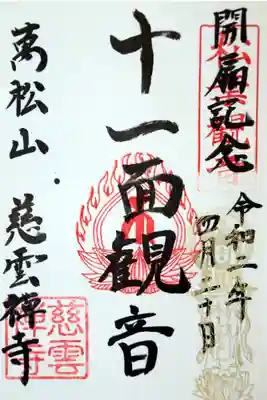 開扉記念
令和二年
四月二十日
十一面観音
萬松山・慈雲禅寺
慈雲
禅寺